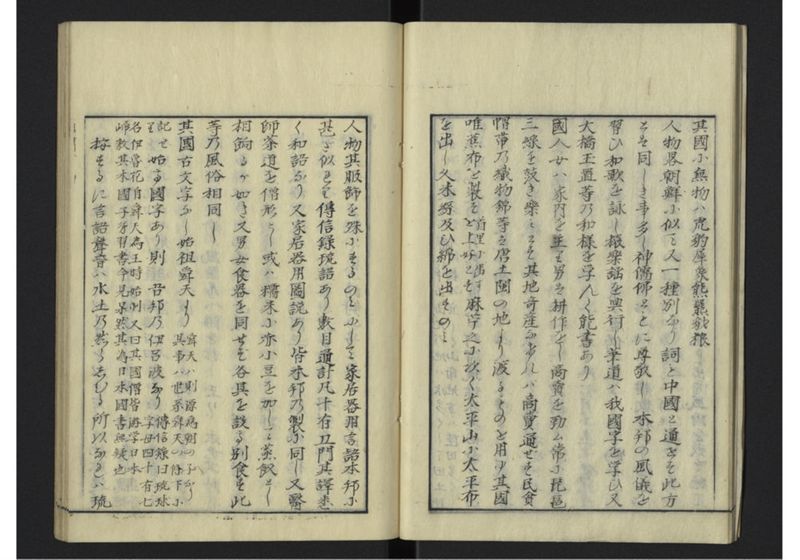 其國ニ無物ハ虎豹犀象熊羆豺狼
人物畧朝鮮ニ似て又一種別なり詞と中國と通させ此方
とそ同しき事多し神儒佛ともに尊敬し本邦の風儀を
習ひ和歌を詠し猿樂謡を興行し筆道ハ我國字を学ひ又
大橋玉置等乃和様を学んて能書あり
國人女ハ家内を主り男は耕作をし商賣を勤む常に琵琶
三線を鼓き樂とす其地奇産なけれハ商賣通せす民貧
帽帶乃織物錦等を唐土閩の地より渡るものを用ゆ其國
唯蕉布を製す首里に出るを上好とす麻苧之に次く太平山に太平布
を出し久米紬及ひ綿を出すのミ
人物其服飾を殊にするのミにして家居器用言語本邦に
甚た似たり傳信録琉語あり數目通計凡十有五門其譯悉
く和語なり又家居器用圖説あり皆本邦乃製に同し又醫
師茶道を僧形とし或ハ糯米に赤小豆を加して蒸飯とし
相餉るか如き又男女食器を同せす各其を設る別食す此
等乃風俗相同し
其國古文字なし始祖舜天より舜天ハ則源為朝の子なり其事ハ世系舜天の條下に
記す始る國字あり則吾邦乃伊呂波なり傳信録曰琉球字母四十有七
名伊魯花自舜天為王時始制又曰其國僧皆游学日本
帰教其本國子弟習書今見果然其為日本國書無疑也
按するに言語聲音ハ水土乃然らしむる所以なれハ琉